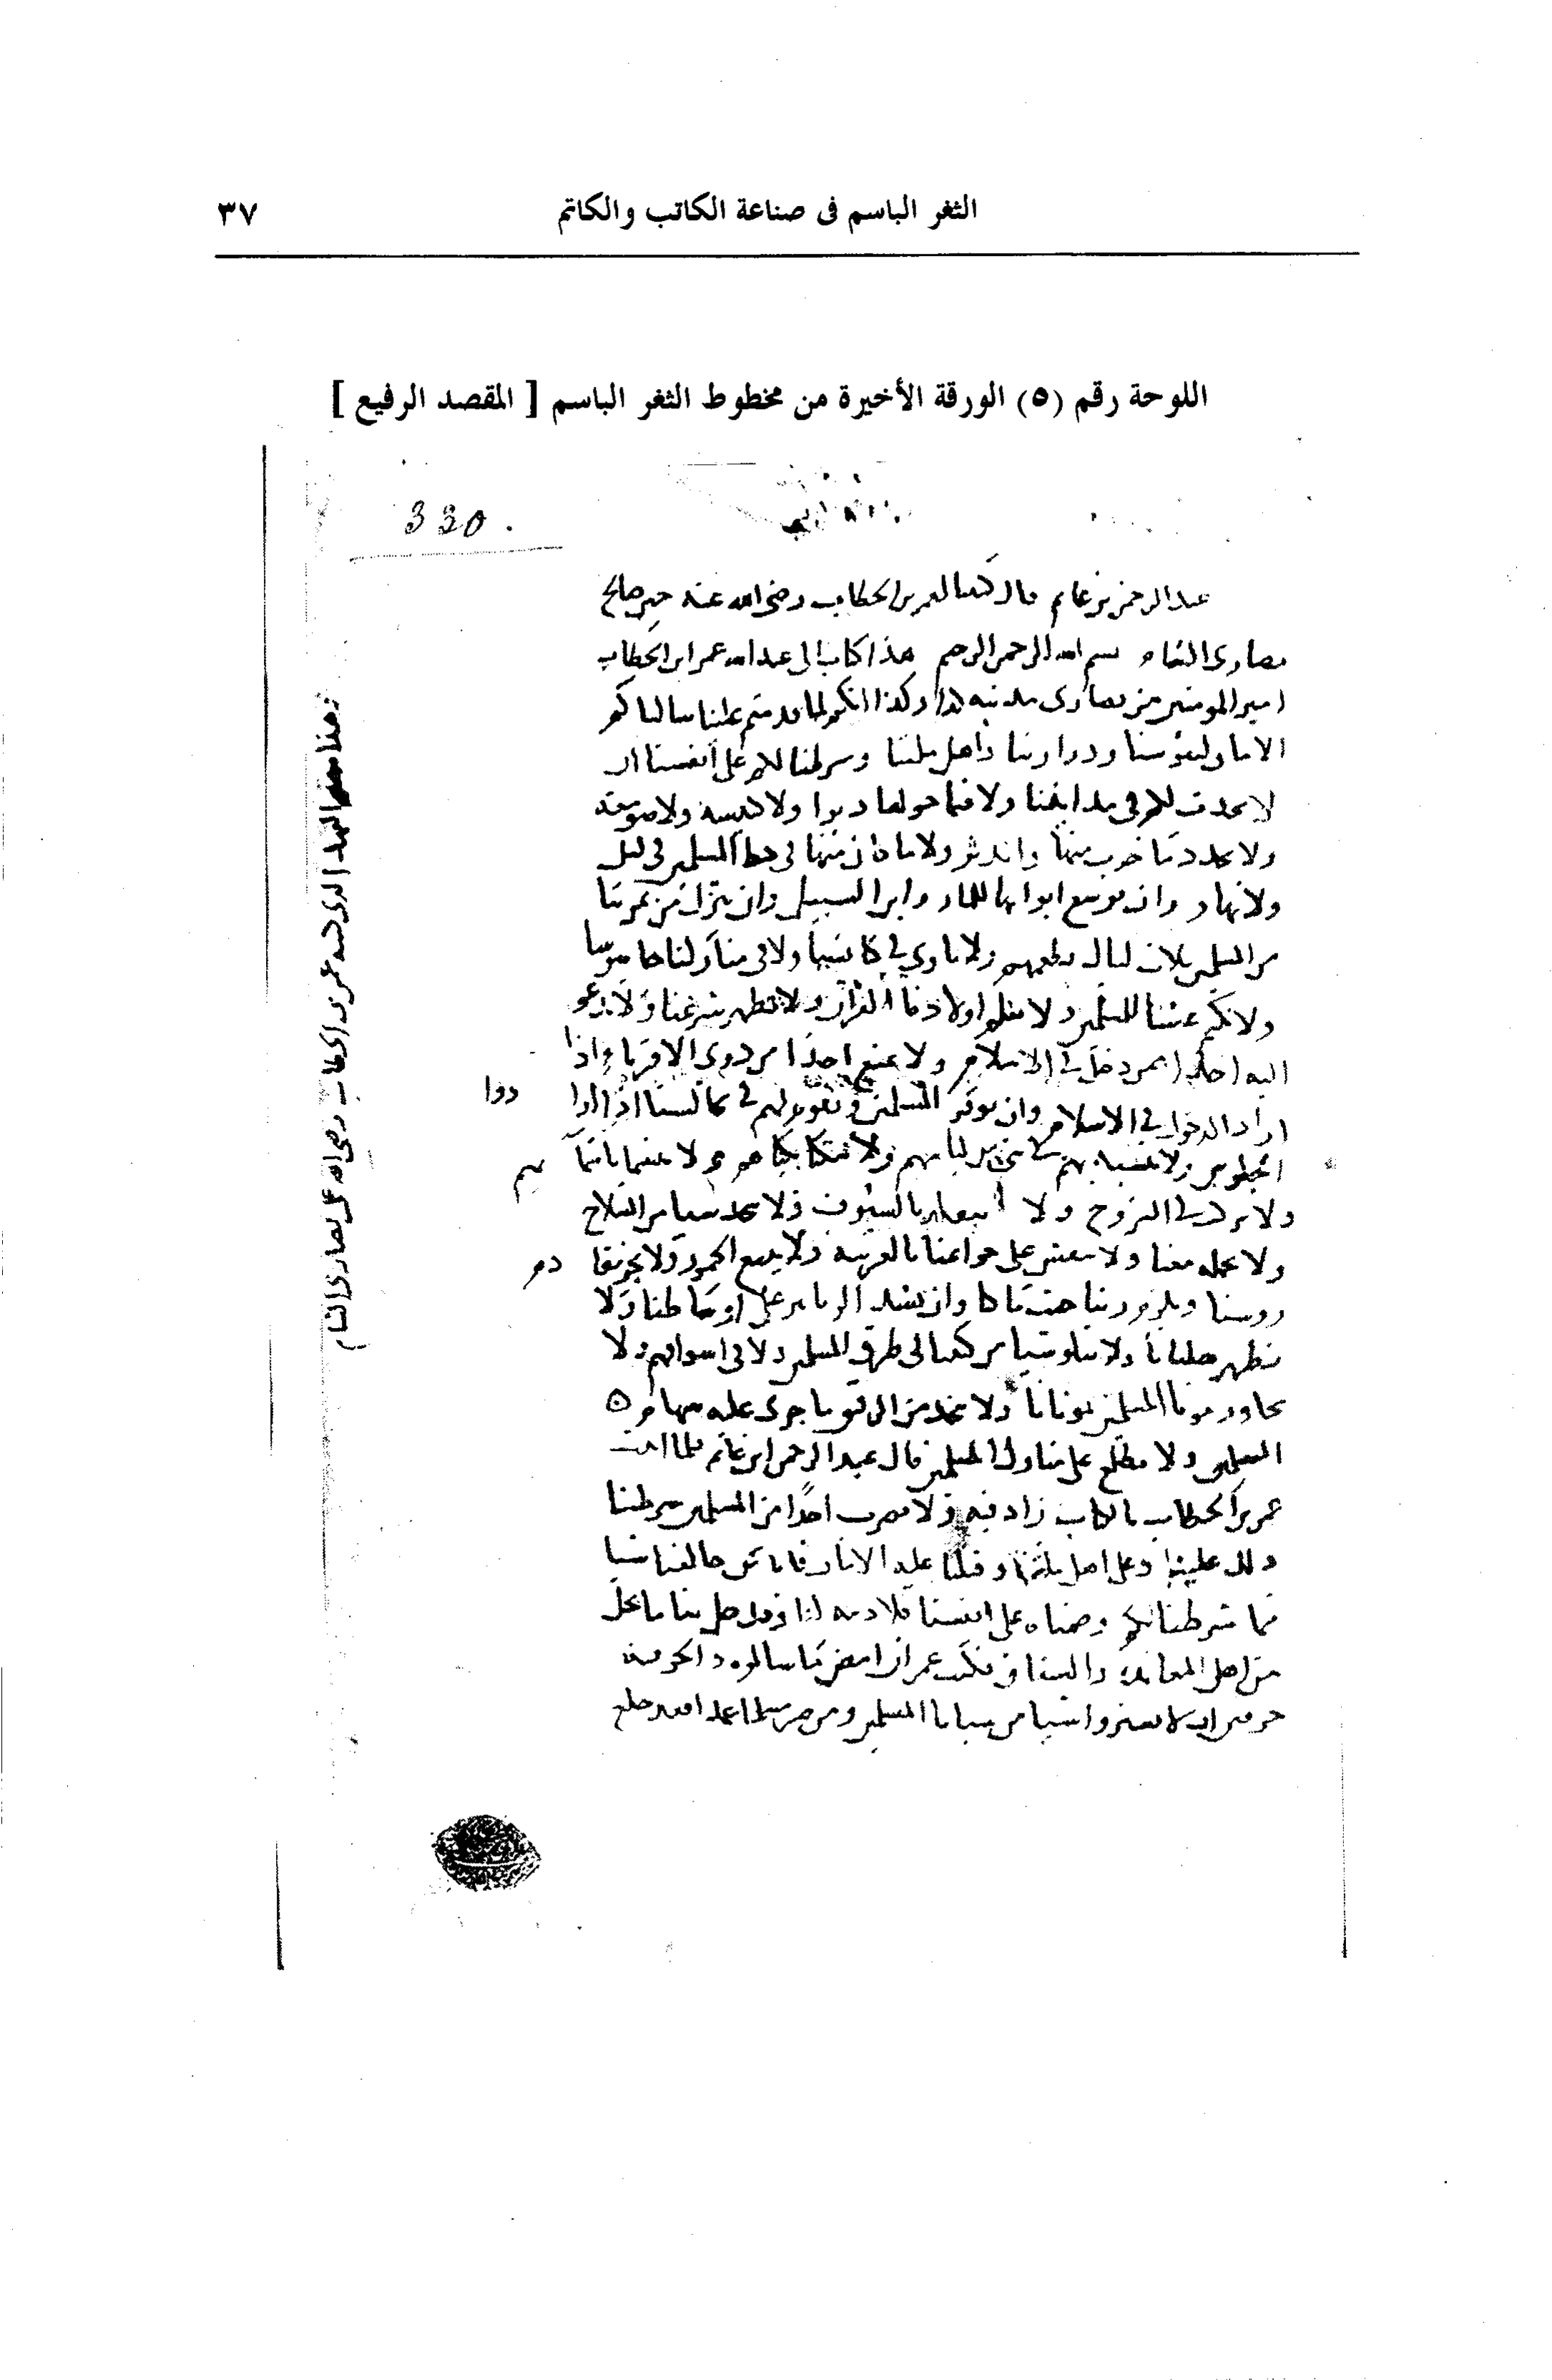 الثغر الباسم فى صناعة الكاتب والكاتم
٣٧
اللوحة رقم (٥) الورقة الأخيرة من مخطوط الثغر الباسم [ المقصد الرفيع ]
330
عبد الرحمن بن غانم قال كتبنا لعمر بن الخطاب رضى الله عنه حين صالح
نصارى الشام بسم الله الرحمن الرحيم هذا كتاب الى عبد الله عمر ابن الخطاب
امير المومنين من نصارى مدينه كذا وكذا انكم لما قدمتم علينا سالناكم
الامان لنفوسنا ودرارينا واهل ملتنا وشرطنا لكم على انفسنا ان
لا نحدث لكم فى مداينا ولا فيما حولها ديرا ولا كنيسه ولا صومعه
ولا نجدد ما خرب منها واندثر ولا ما كان منها فى خطط المسلمين فى ليل
ولا نهار وان نوسع ابوابها للمار وابن السبيل وان ننزل من مر بنا
من المسلمين ثلاث ليال نطعمهم ولا ناوي في كنائسنا ولا فى منازلنا جاسوسا
ولا نكتم غشا للمسلمين ولا نعلم اولادنا القرآن ولا نظهر شرعنا ولا ندعو
اليه احدا ولا نمنع احدا من ذوى الاقربا واذا
اراد الدخول في الاسلام وان نوقر المسلمين ونقوم لهم في مجالسنا اذا ارادوا
الجلوس ولا نتشبه بهم في شى من لباسهم
ولا السروج ولا بالسيوف ولا نتخذ شيا من السلاح
ولا نحمله معنا ولا ننقش على خواتمنا بالعربيه ولا نبيع الخمور ولا نجز مقادم
روسنا ونلزم زينا حيث ما كنا وان نشد الزنانير على اوساطنا ولا
نظهر صلباننا ولا نتلو شيا من كتبنا فى طرق المسلمين ولا فى اسواقهم ولا
نجاور موتا المسلمين بموتانا ولا نتخذ من الرقيق ما جرى عليه سهام
المسلمين ولا نطلع على منازل المسلمين قال عبد الرحمن ابن غانم فلما اتيت
عمر بن الخطاب بالكتاب زاد فيه ولا نضرب احدا من المسلمين شرطنا
ذلك علينا وعلى اهل ملتنا وقبلنا عليه الامان فان نحن خالفنا شيا
مما شرطنا لكم وضمناه على انفسنا فلا ذمه لنا وقد حل بنا ما يحل
من اهل المعانده والشقاق فكتب عمر ان امض ما سالوه والحق فيه
حرفين ان لا يشتروا شيا من سبايا المسلمين ومن ضرب مسلما عمدا فقد خلع
هذا الذى كتبه عمر بن الخطاب رضى الله على نصارى الشام